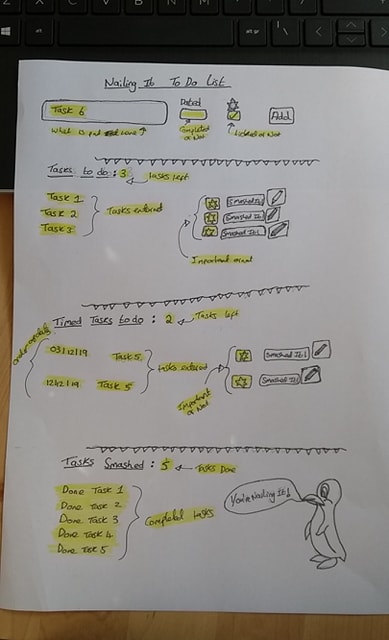 Nailing It To Do List
Task 6
Dated
Add
What to put here
Completed or Not
Ticked or Not
Tasks to do : 3 tasks left
Task 1
Task 2
Task 3
Tasks entered
Smashed It!
Smashed It!
Smashed It!
Important or not
Timed Tasks to do : 2 Tasks left
03/12/19 Task 5
12/12/19 Task 5
tasks entered
Smashed It!
Smashed It!
Important or Not
Tasks Smashed : 5 Tasks Done
Done Task 1
Done Task 2
Done Task 3
Done Task 4
Done Task 5
Completed tasks
You're Nailing It!